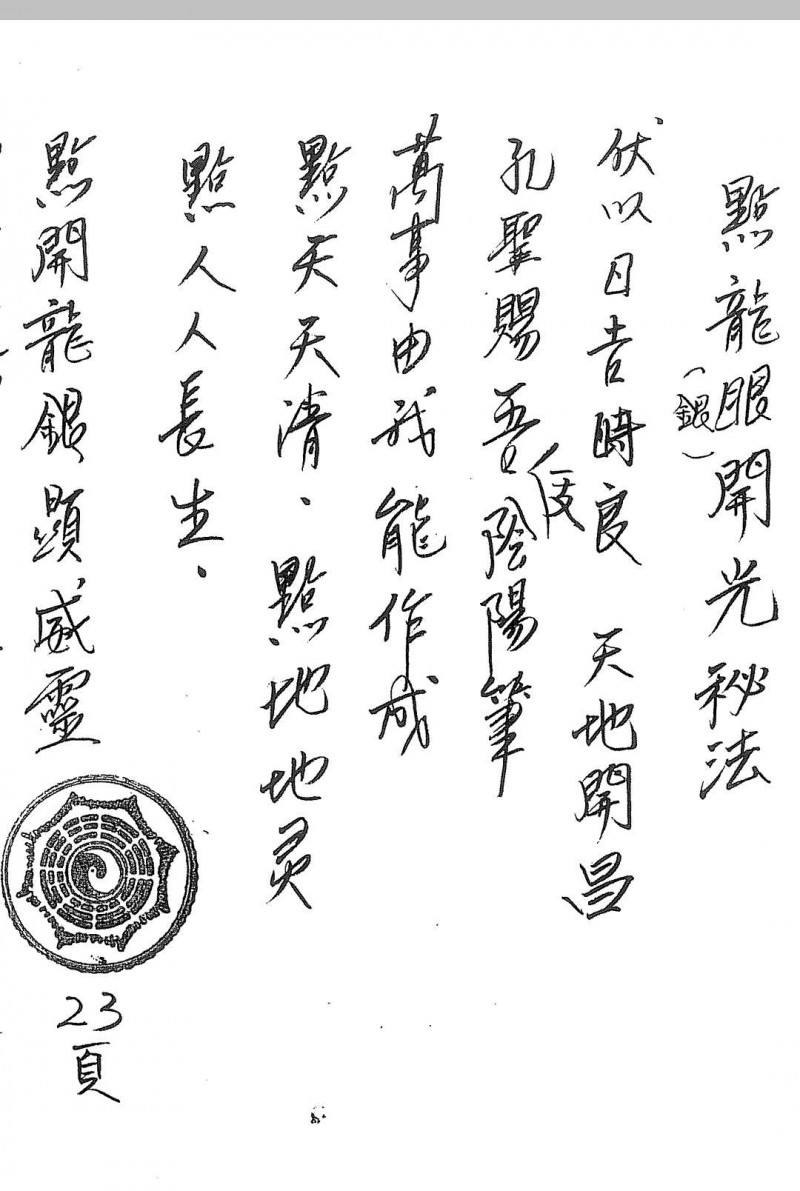 點龍眼開光秘法
(銀)
伏以日吉時良 天地開昌
孔聖賜吾陰陽筆
仗
萬事由我能作成
點天天清．點地地灵
點人人長生．
點開龍銀顯威靈
23
頁